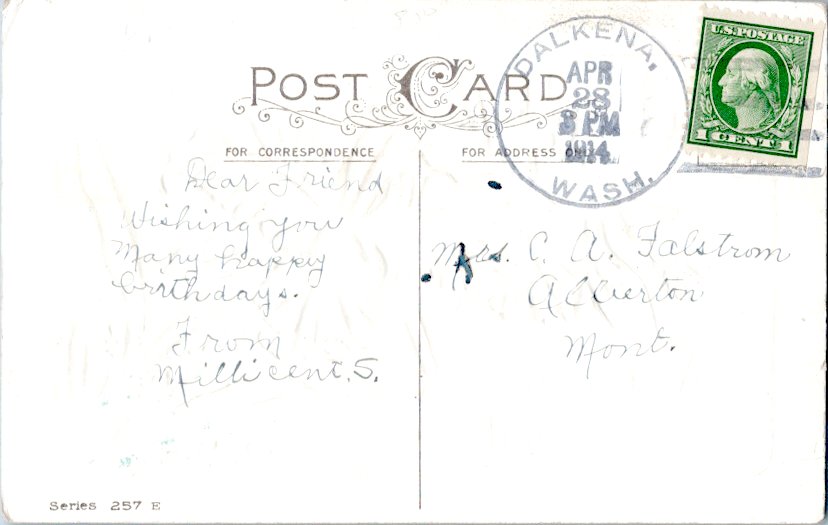 POST CARD
DALKENA,
APR
28
3 PM
1914
WASH.
U.S. POSTAGE
1 CENT 1
FOR CORRESPONDENCE
FOR ADDRESS ONLY
Dear Friend
Wishing you
Many happy
birthdays.
From
Millicent. S.
Mrs. C. A. Falstrom
Alberton
Mont.
Series 257 E